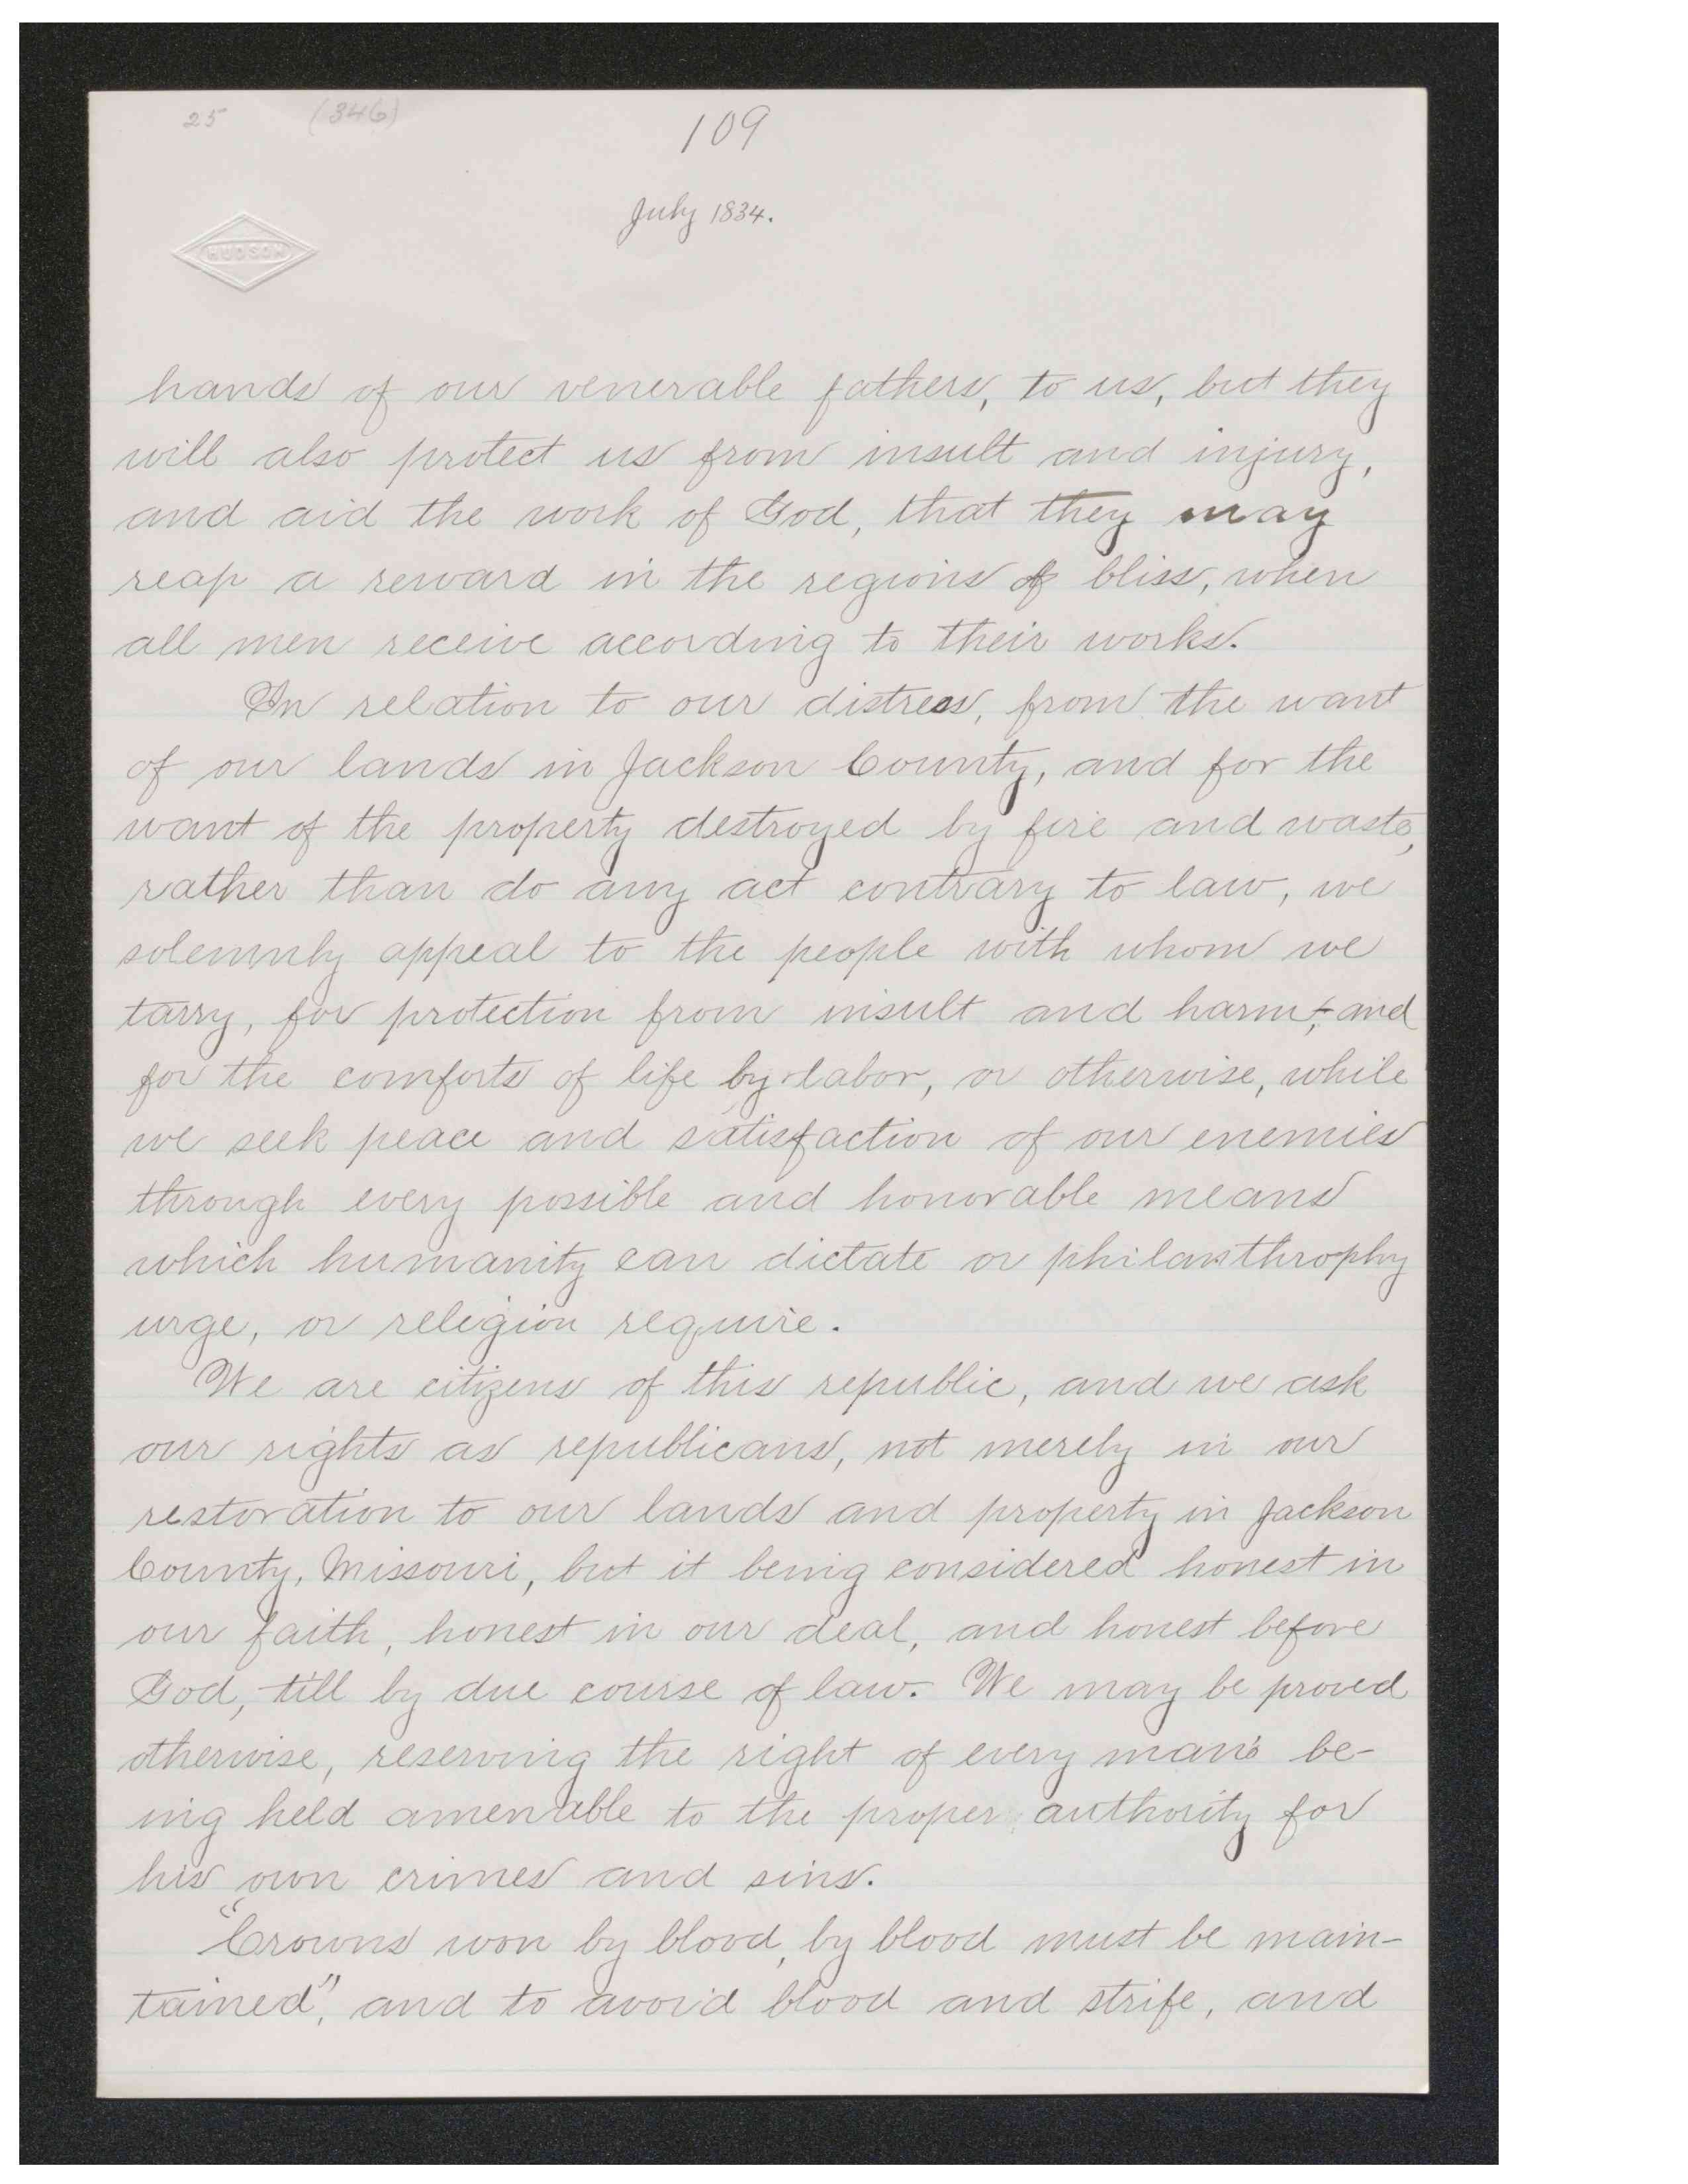 25 (346) 109
July 1834.
HUDSON
hands of our venerable fathers, to us, but they
will also protect us from insult and injury,
and aid the work of God, that they may
reap a reward in the regions of bliss, when
all men receive according to their works.
In relation to our distress, from the want
of our lands in Jackson County, and for the
want of the property destroyed by fire and waste,
rather than do any act contrary to law, we
solemnly appeal to the people with whom we
tarry, for protection from insult and harm, and
for the comforts of life by labor, or otherwise, while
we seek peace and satisfaction of our enemies
through every possible and honorable means
which humanity can dictate or philanthrophy
urge, or religion require.
We are citizens of this republic, and we ask
our rights as republicans, not merely in our
restoration to our lands and property in Jackson
County, Missouri, but it being considered honest in
our faith, honest in our deal, and honest before
God, till by due course of law. We may be proved
otherwise, reserving the right of every man's be-
ing held amenable to the proper authority for
his own crimes and sins.
"Crowns won by blood, by blood must be main-
tained", and to avoid blood and strife, and